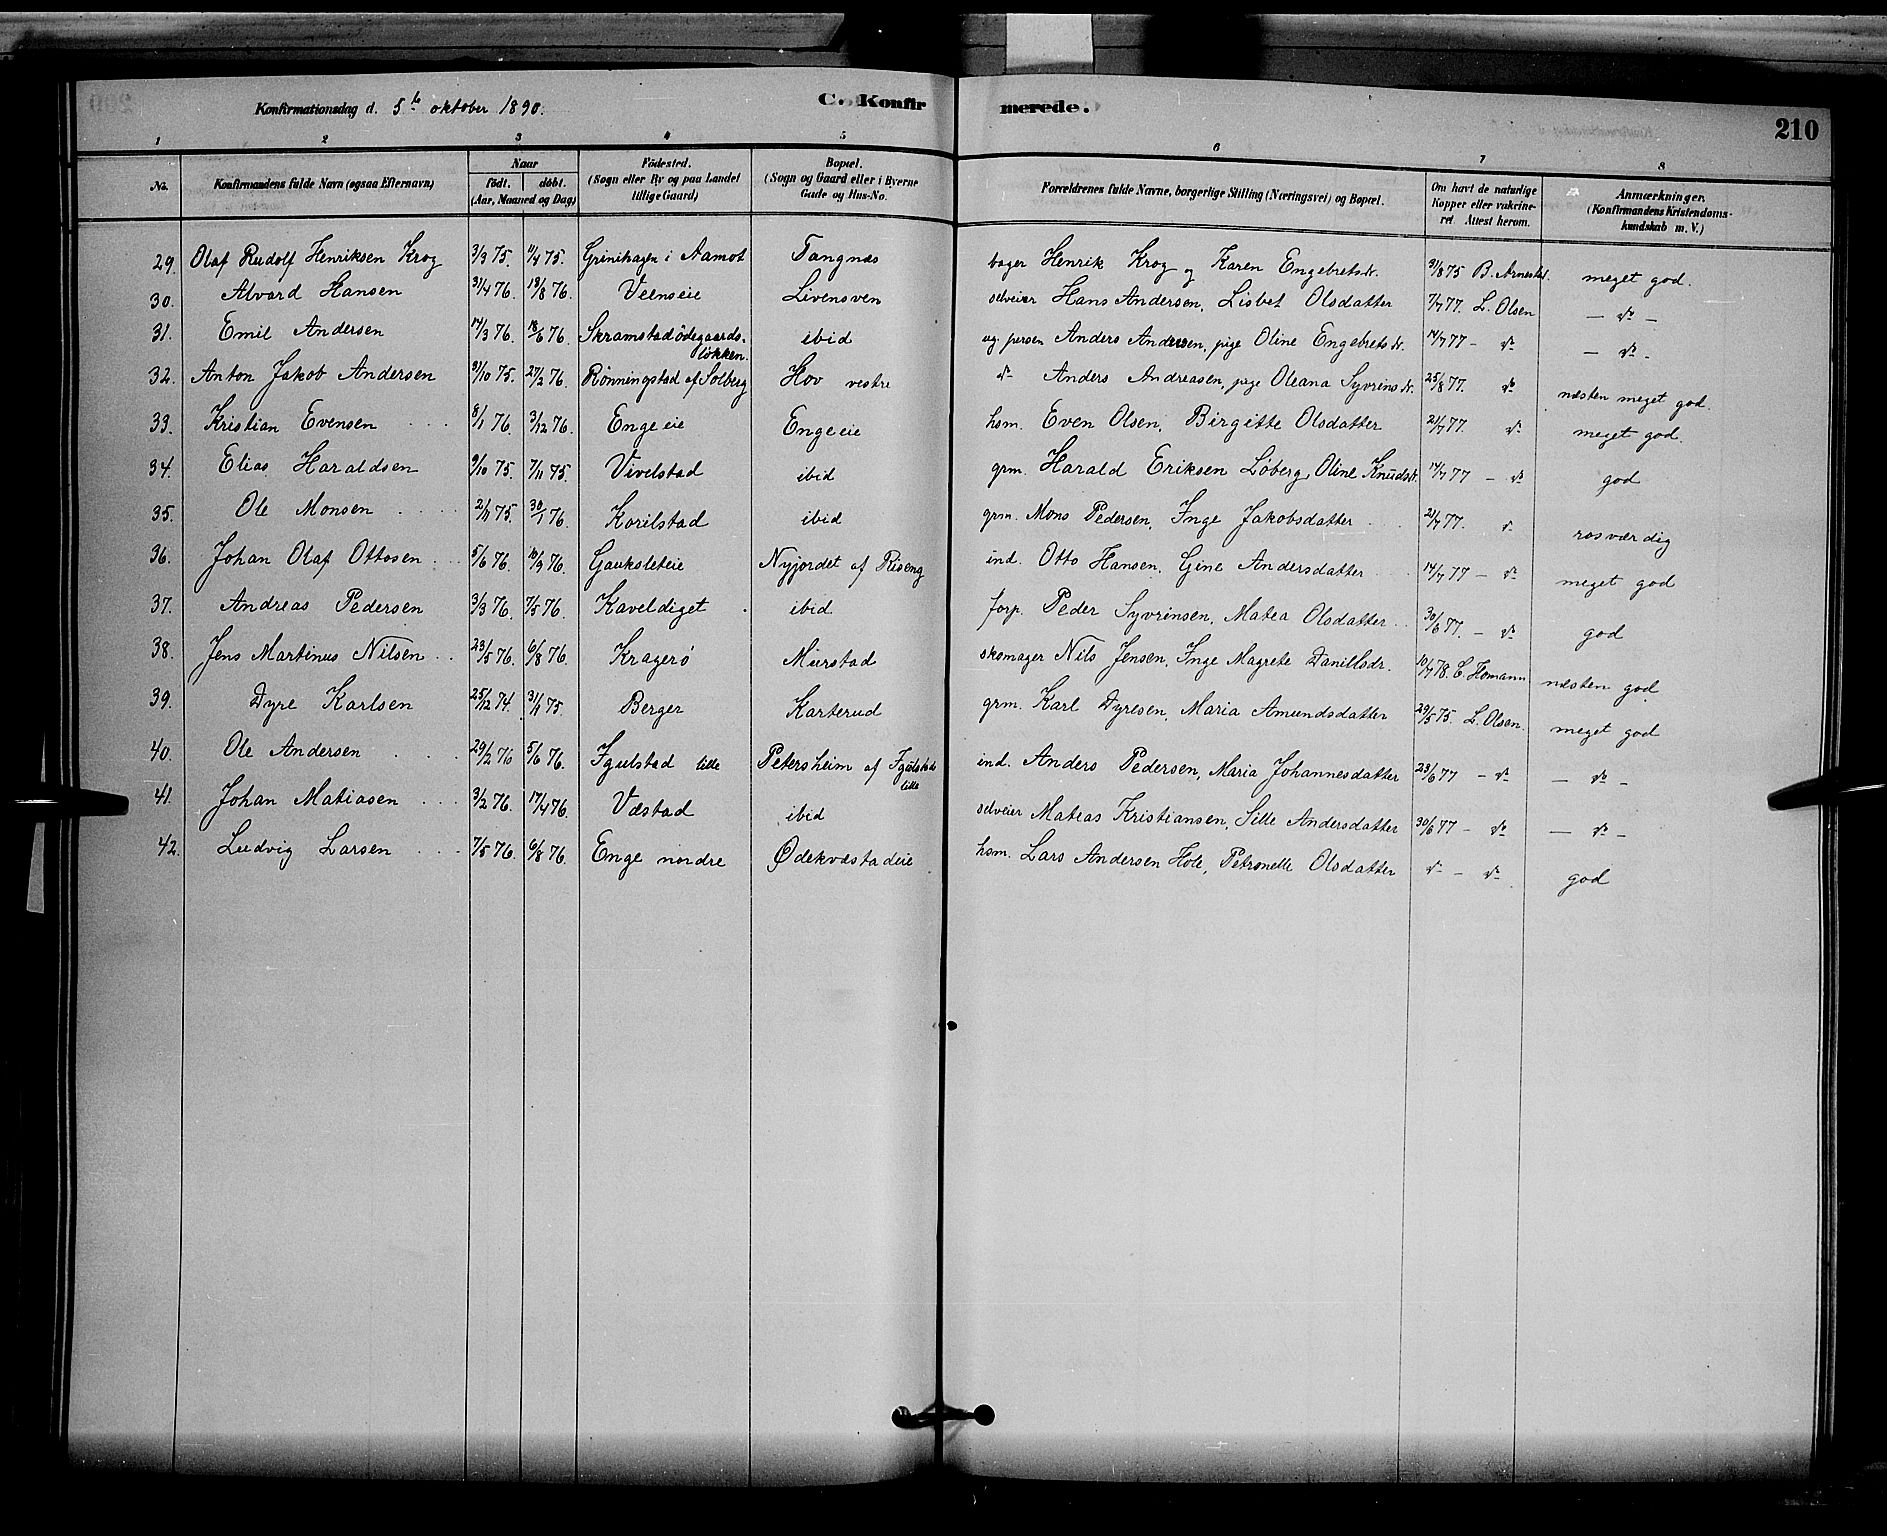 Konfirmationsdag d. 5te oktober 1890.
C. Konfirmerede.
210
1 2 3 4 5 6 7 8
No. | Konfirmandens fulde Navn (ogsaa Efternavn) | Naar födt. döbt. (Aar, Maaned og Dag) | Födested. (Sogn eller By og paa Landet tillige Gaard) | Bopæl. (Sogn og Gaard eller i Byerne Gade og Hus-No. | Forældrenes fulde Navne, borgerlige Stilling (Næringsvei) og Bopæl. | Om havt de naturlige Kopper eller vakcineret Attest herom. | Anmærkninger. (Konfirmandens Kristendomskundskab m. V.)
29. Olaf Rudolf Henriksen Krog 3/3 75. 11/4 75. Grinihagen i Aamot Tangnæs bager Henrik Krog og Karen Engebretsdr. 31/8 75 B. meget god.
30. Alvard Hansen 31/4 76. 13/8 76. Veenseie Livensven selveier Hans Andersen, Lisbet Olsdatter 7/7 77. L. Olsen — do —
31. Emil Andersen 14/3 76. 18/6 76. Skramstadödegaards-lökken. ibid ug. person Anders Andersen, pige Oline Engebretsdr. 14/7 77 - do — do -
32. Anton Jakob Andersen 31/10 75. 27/2 76. Rönningstad af Solberg Hov vestre do Anders Andreasen, pige Oleana Syvrinsdr. 25/8 77. do næsten meget god.
33. Kristian Evensen 8/1 76. 3/12 76. Engeeie Engeeie hsm. Even Olsen, Birgitte Olsdatter 21/7 77. do meget god.
34. Elias Haraldsen 9/10 75. 7/11 75. Vivelstad ibid grm. Harald Eriksen Löberg, Oline Knudsdr. 14/7 77 - do god
35. Ole Monsen 2/11 75. 30/1 76. Korilstad ibid grm. Mons Pedersen, Inge Jakobsdatter 21/7 77. do rosværdig
36. Johan Olaf Ottosen 5/6 76. 10/9 76. Gauksleteie Nyjordet af Riseng ind. Otto Hansen, Gine Andersdatter 14/7 77 - do meget god
37. Andreas Pedersen 3/3 76. 7/5 76. Kaveldiget ibid forp. Peder Syvrinsen, Matea Olsdatter 30/6 77. - do god
38. Jens Martinus Nilsen 23/5 76. 6/8 76. Kragerö Murstad skomager Nils Jensen, Inge Magrete Danillsdr. 10/7 78. C. Homann næsten god
39. Dyre Karlsen 25/12 74. 31/1 75. Berger Karterud grm. Karl Dyresen, Maria Amundsdatter 29/5 75. L. Olsen. meget god
40. Ole Andersen 29/2 76 5/6 76. Igulstad lille Petersheim af Igulstad lille ind. Anders Pedersen, Maria Johannesdatter 23/6 77 - do — do —
41. Johan Matiasen 3/2 76. 17/4 76. Væstad ibid selveier Mateas Kristiansen, Sille Andersdatter 30/6 77 - do — do —
42. Ludvig Larsen 7/5 76. 6/8 76. Enge nordre Ödekvæstadeie hsm. Lars Andersen Hole, Petronelle Olsdatter do — do god